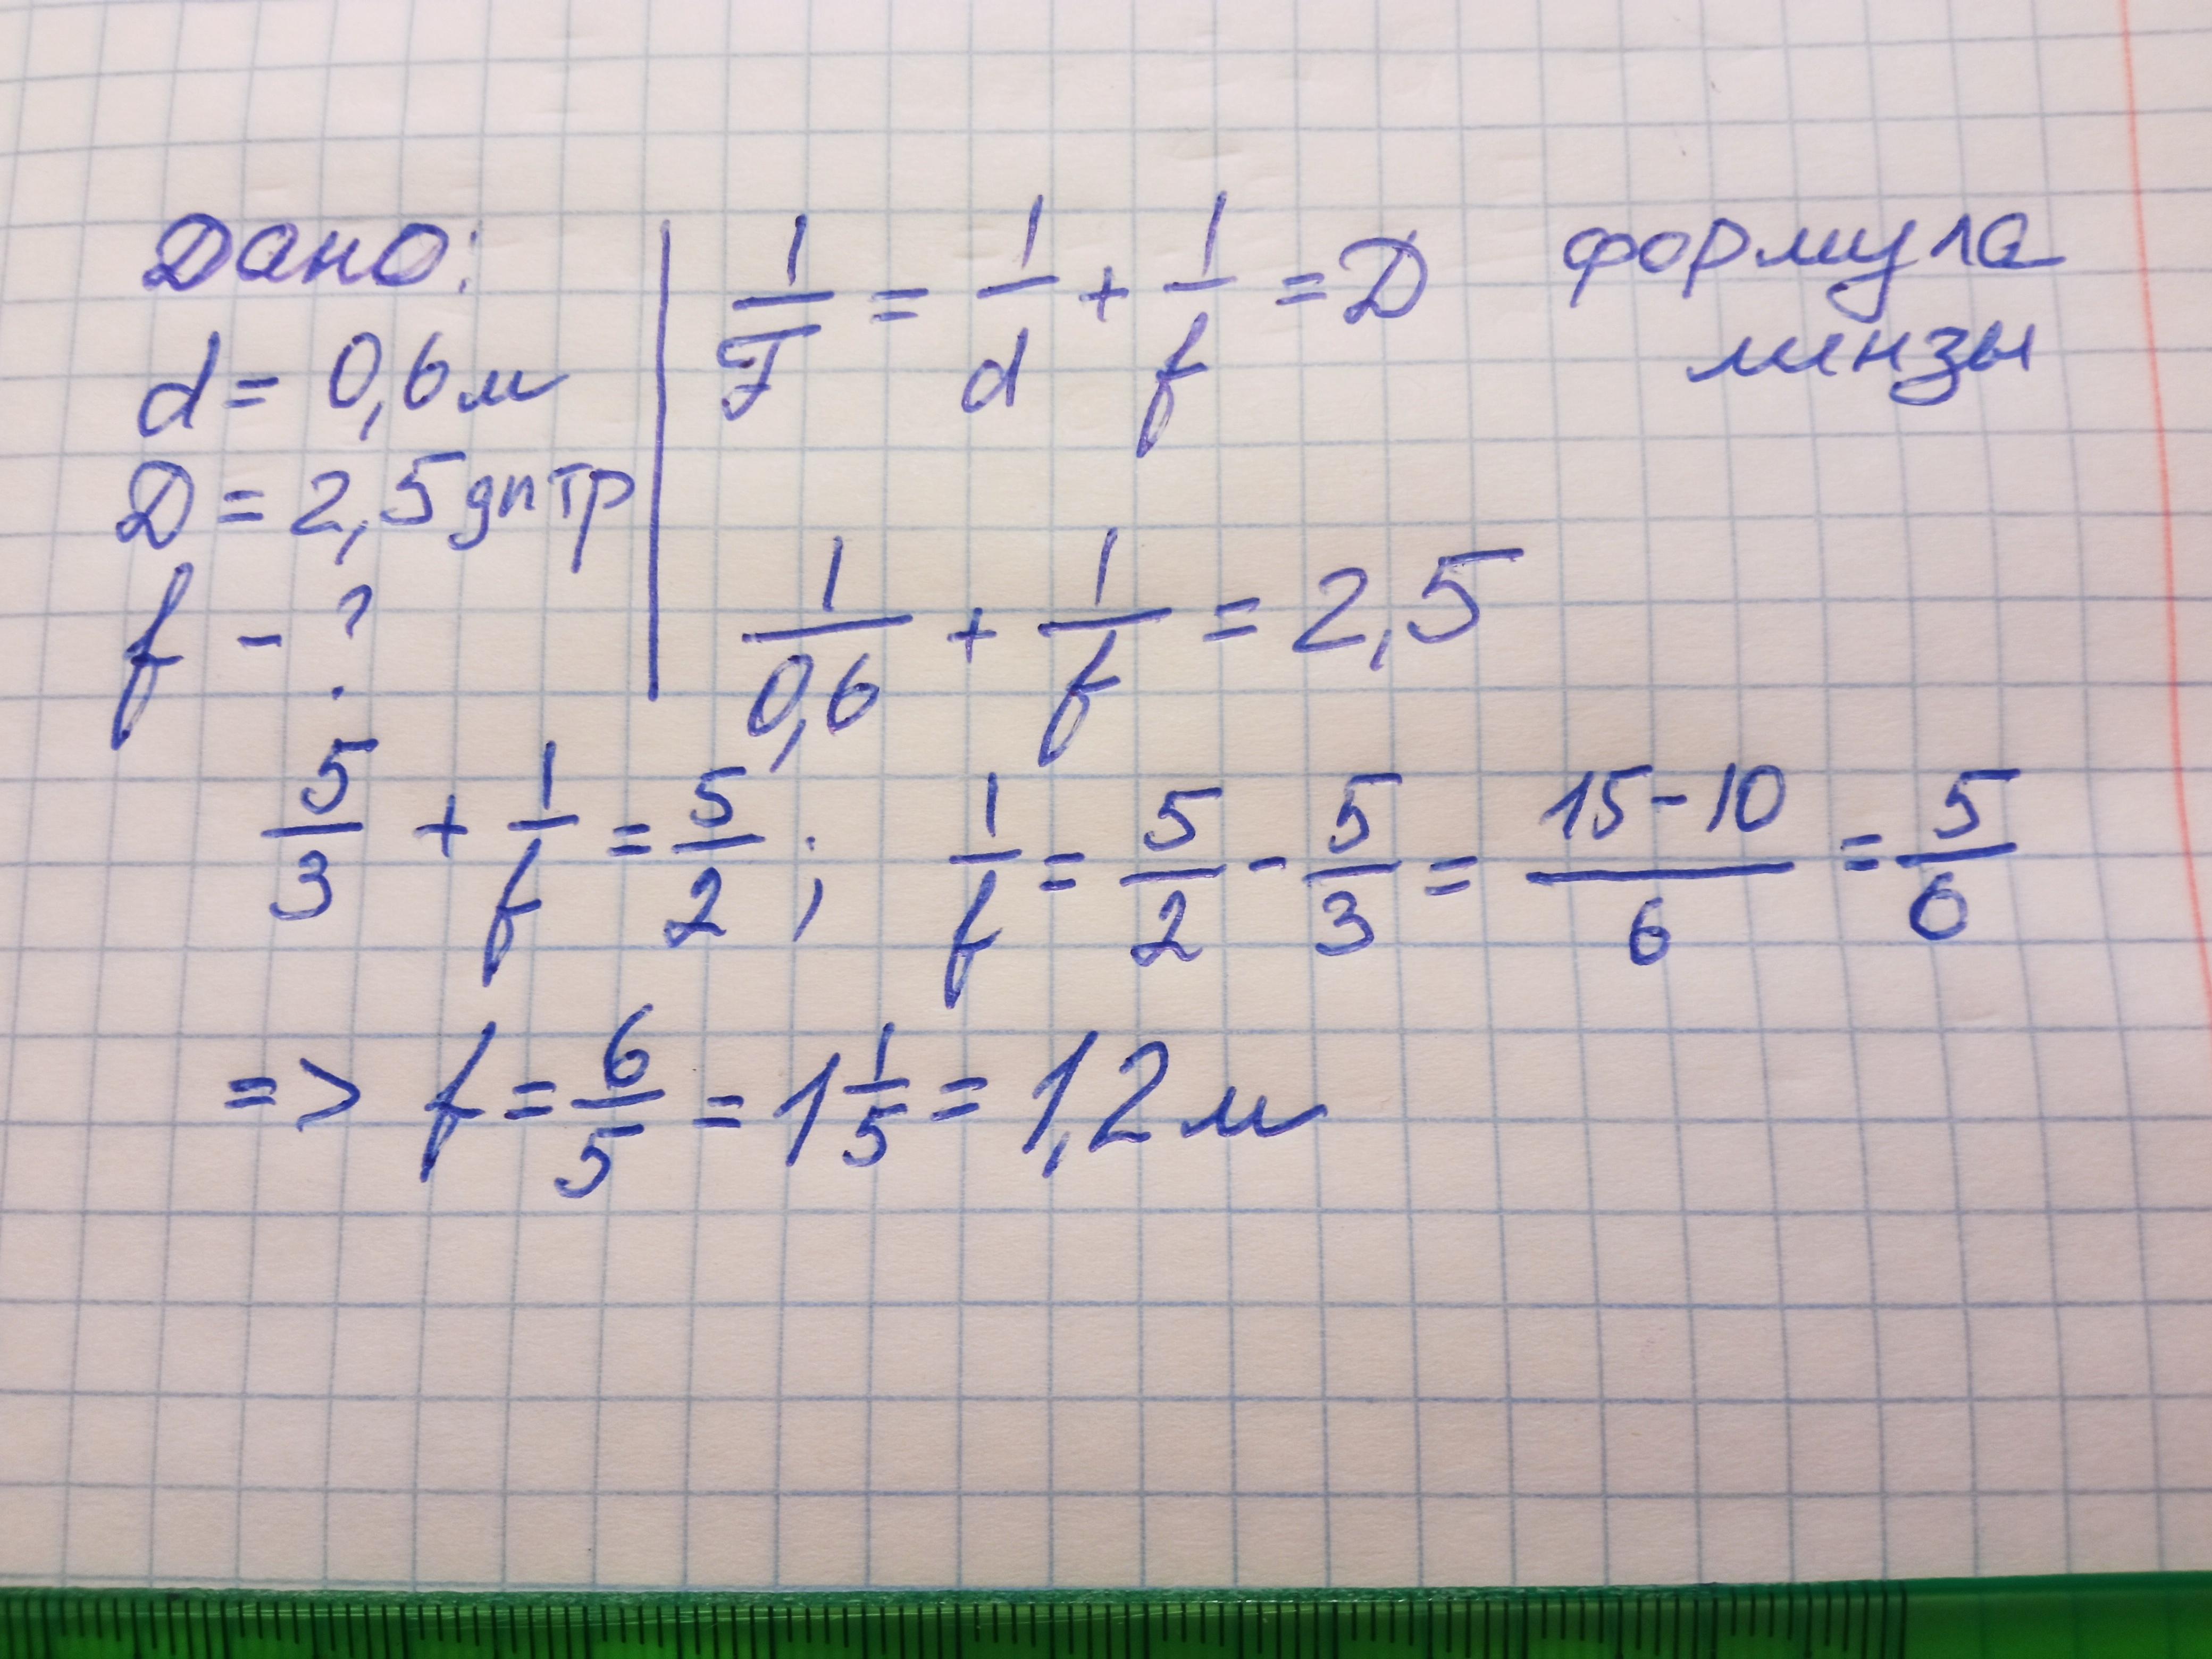 Дано:
d = 0,6 м
D = 2,5 дптр
f - ?
1/F = 1/d + 1/f = D формула
линзы
1/0,6 + 1/f = 2,5
5/3 + 1/f = 5/2 ; 1/f = 5/2 - 5/3 = 15-10/6 = 5/6
=> f = 6/5 = 1 1/5 = 1,2 м